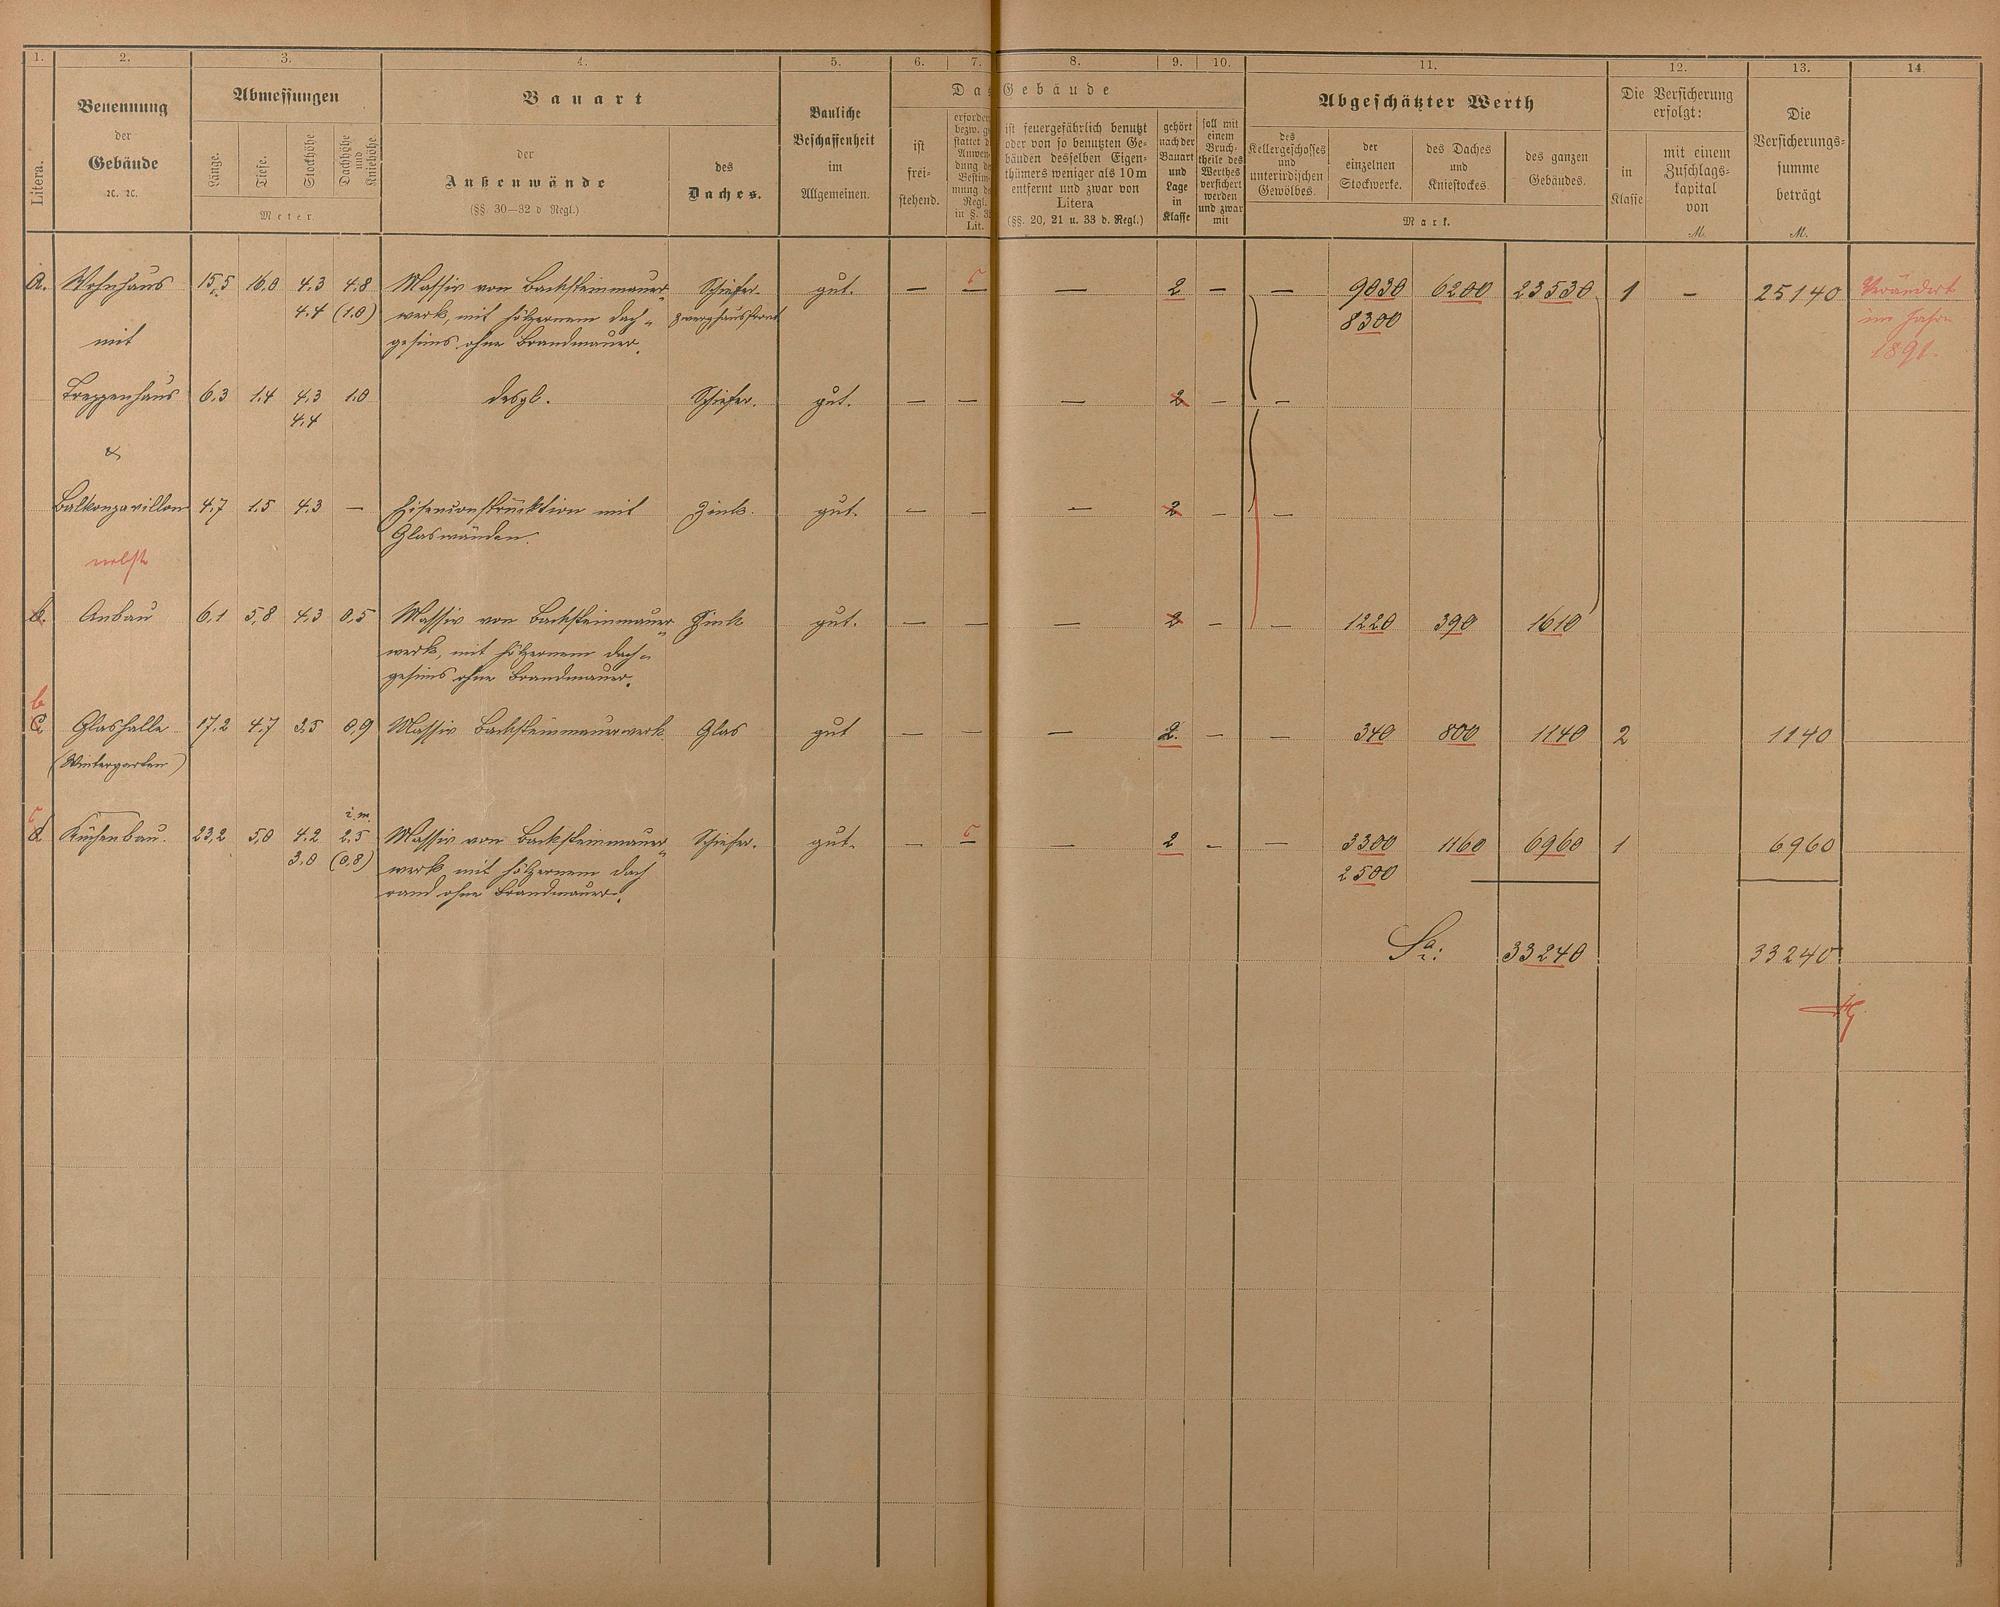 1. 2. 3. 4. 5. 6. 7. 8. 9. 10. 11. 12. 13. 14
Litera.
Benennung
der
Gebäude
ꝛc. ꝛc.
Abmessungen
Länge.
Tiefe.
Stockhöhe
Dachhöhe
und
Kniehöhe.
Meter.
Bauart
der
Außenwände
(§§ 30—32 d Regl.)
des
Daches.
Bauliche
Beschaffenheit
im
Allgemeinen.
Das Gebäude
ist
frei-
stehend.
erforder
bezw. g
stattet d
Anwen-
dung de
Bestim-
mung de
Regl.
in §. 3
Lit.
ist feuergefährlich benutzt
oder von so benutzten Ge-
bäuden desselben Eigen-
thümers weniger als 10 m
entfernt und zwar von
Litera
(§§. 20, 21 u. 33 d. Regl.)
gehört
nach der
Bauart
und
Lage
in
Klasse
soll mit
einem
Bruch-
theile des
Werthes
versichert
werden
und zwar
mit
Abgeschätzter Werth
des
Kellergeschosses
und
unterirdischen
Gewölbes.
der
einzelnen
Stockwerke.
des Daches
und
Kniestockes.
des ganzen
Gebäudes.
Mark.
Die Versicherung
erfolgt:
in
Klasse
mit einem
Zuschlags-
kapital
von
M.
Die
Versicherungs-
summe
beträgt
M.
a. Wohnhaus 15,5 16,0 4,3 4,8 Massiv von Backsteinmauer- Schiefer. gut. — — — 2 — — 9030 6200 23530 1 — 25140 Verändert
4,4 (1.0) werk, mit hölzernem Dach- Zwerghausfront 8300 im Jahre
mit gesims ohne Brandmauer. 1891.
Treppenhaus 6,3 1,4 4,3 1.0 desgl. Schiefer. gut. — — — 2 — —
4,4
&
Balkonpavillon 4,7 1.5 4.3 — Eisenconstruktion mit Zink. gut. — — — 2 — —
Glaswänden.
nebst
b. Anbau 6,1 5,8 4,3 0,5 Massiv von Backsteinmauer- Zink gut. — — — 2 — — 1220 390 1610
werk, mit hölzernem Dach-
gesims ohne Brandmauer.
b
c Glashalle 17,2 4,7 3,5 0,9 Massiv Backsteinmauerwerk Glas gut — — — 2. — — 340 800 1140 2 1140
(Wintergarten)
c i. m.
d Küchenbau. 23,2 5,0 4.2 2.5 Massiv von Backsteinmauer- Schiefer. gut. — — — 2 — — 3300 1160 6960 1 6960
3,0 (0,8) werk mit hölzernem Dach 2500
rand ohne Brandmauer.
Sa: 33240 33240